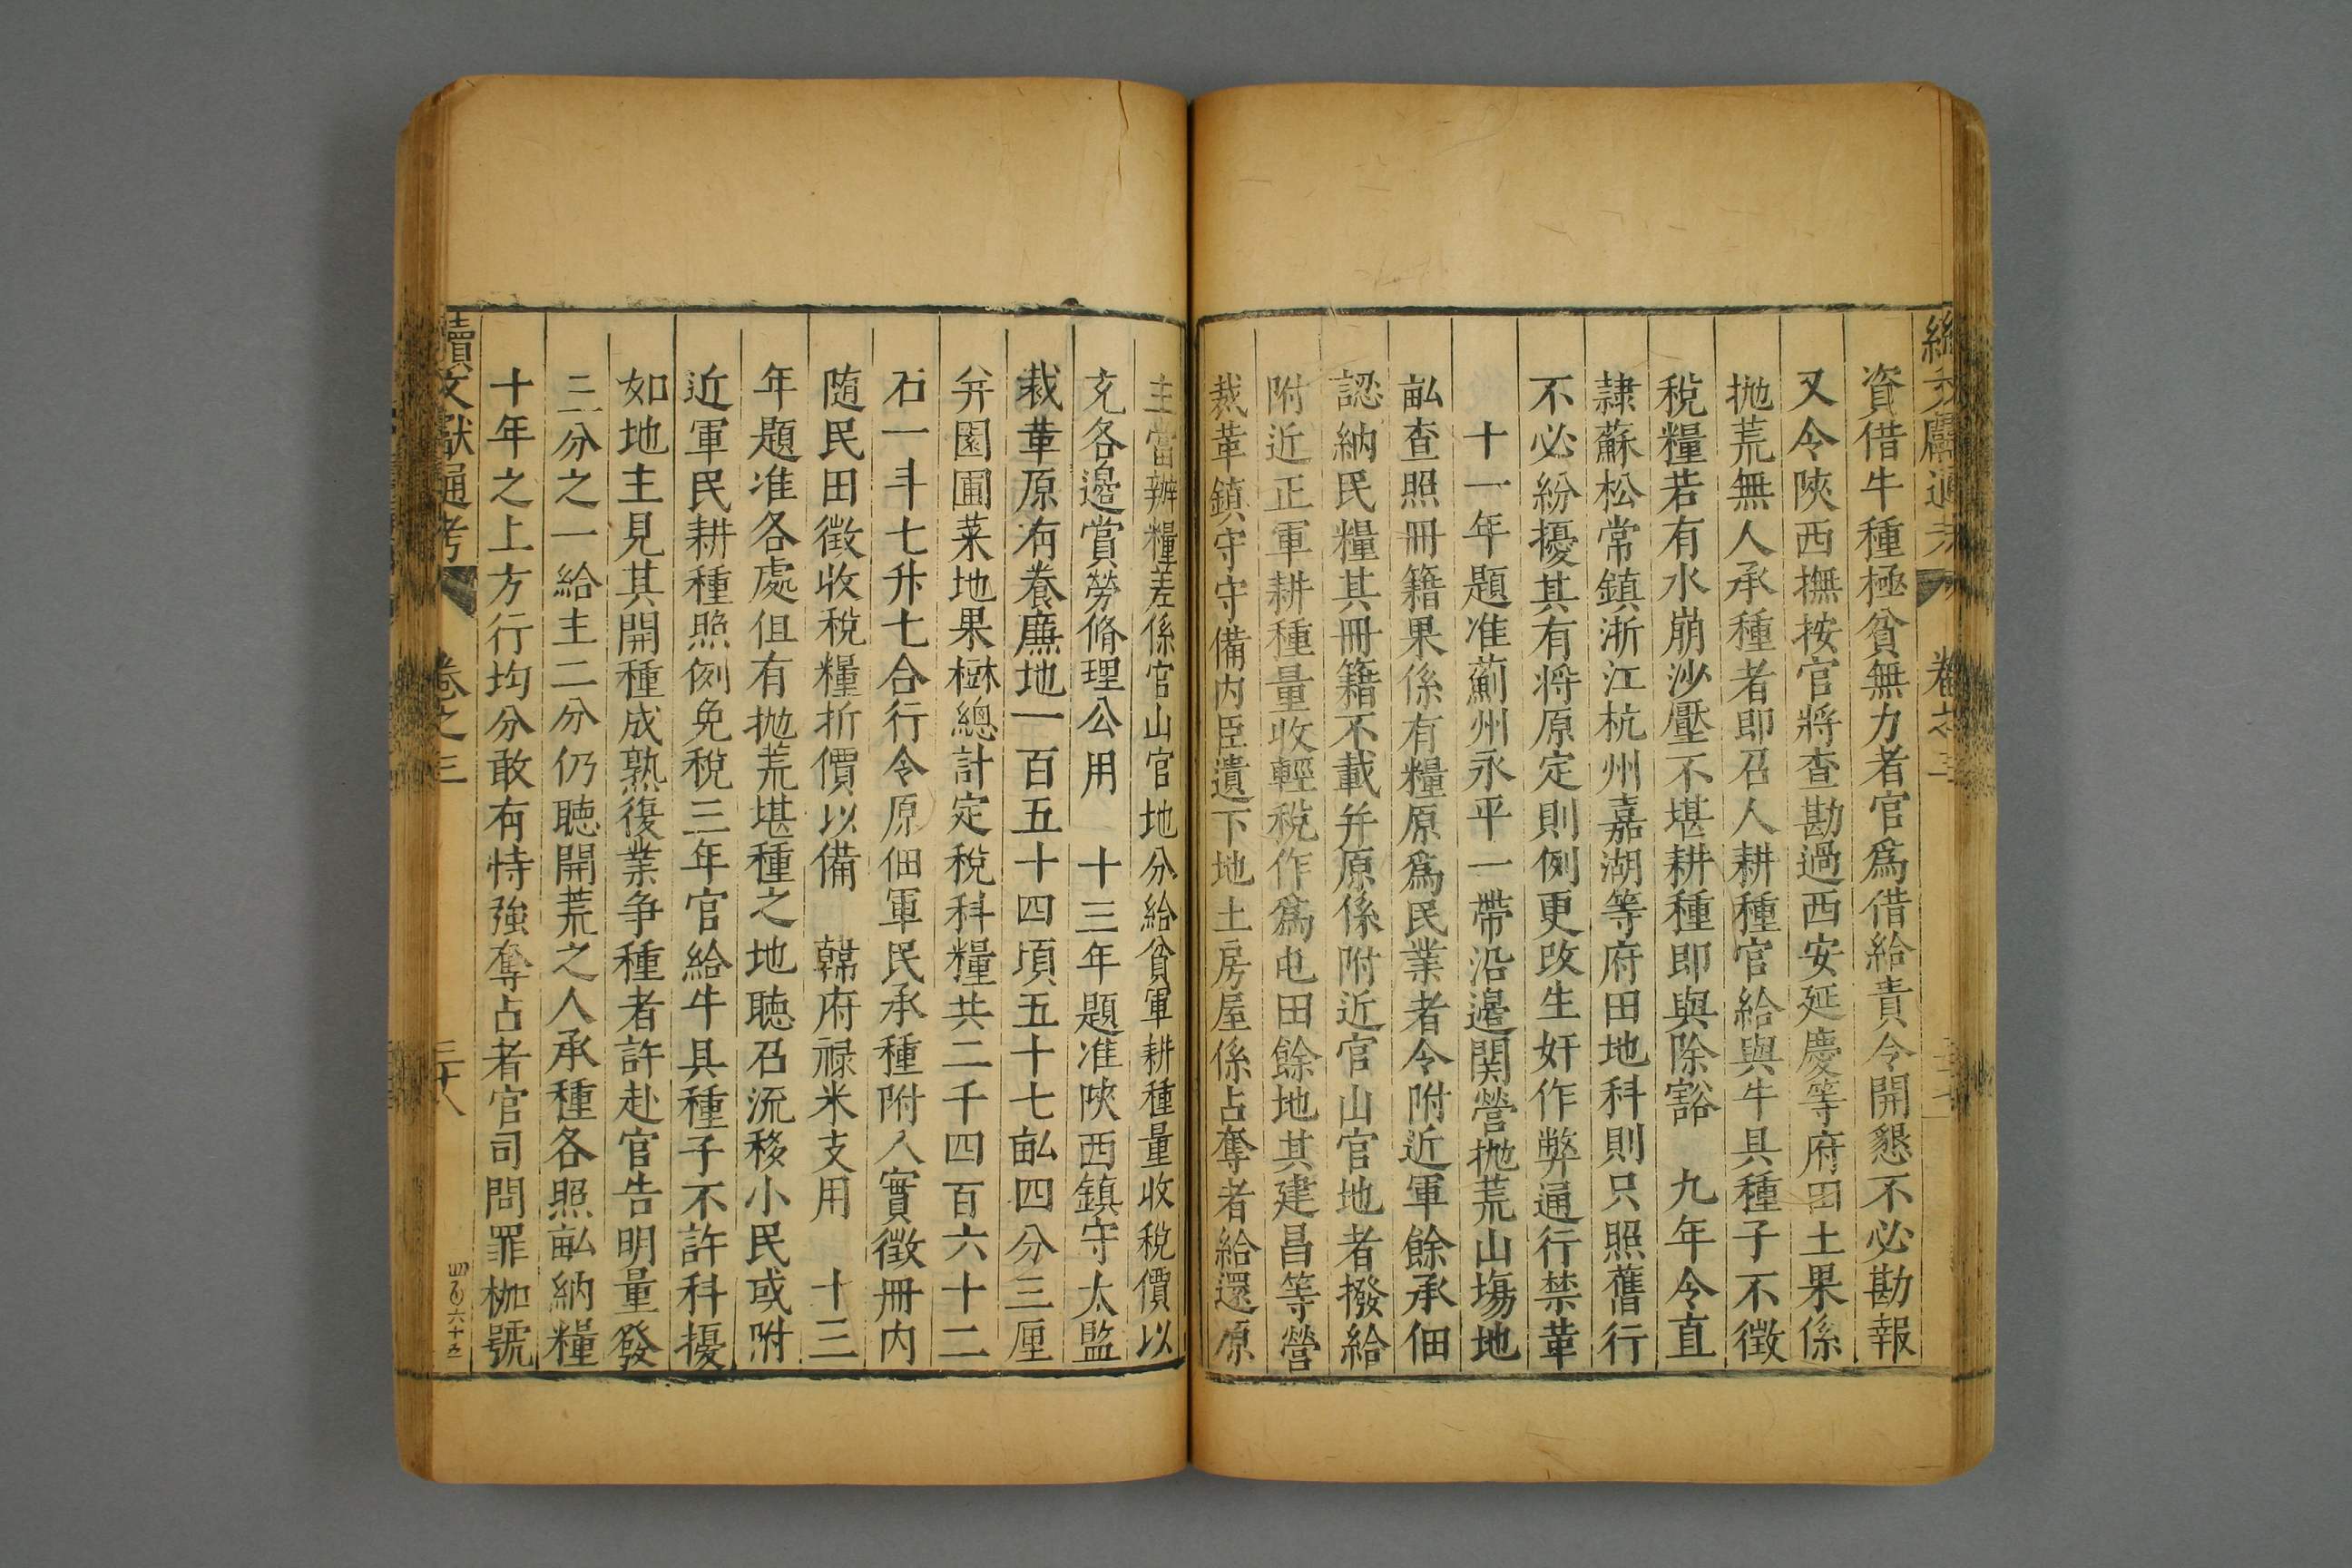 續文獻通考 卷之三
資借牛種極貧無力者官爲借給責令開懇不必勘報
又令陝西撫按官將查勘過西安延慶等府田土果係
拋荒無人承種者即召人耕種官給與牛具種子不徵
稅糧若有水崩沙壓不堪耕種即與除豁 九年令直
隷蘇松常鎮浙江杭州嘉湖等府田地科則只照舊行
不必紛擾其有將原定則例更改生奸作弊通行禁革
十一年題准薊州永平一帶沿邊関營拋荒山塲地
畝查照冊籍果係有糧原爲民業者令附近軍餘承佃
認納民糧其冊籍不載并原係附近官山官地者撥給
附近正軍耕種量收輕稅作爲屯田餘地其建昌等營
裁革鎮守守備内臣遺下地土房屋係占奪者給還原
主當辦糧差係官山官地分給貧軍耕種量收稅價以
充各邊賞勞脩理公用 十三年題准陝西鎮守太監
裁革原有養廉地一百五十四頃五十七畝四分三厘
并園圃菜地果樹總計定稅科糧共二千四百六十二
石一斗七升七合行令原佃軍民承種附入實徵冊内
随民田徵收稅糧折價以備 韓府禄米支用 十三
年題准各處但有拋荒堪種之地聽召流移小民或附
近軍民耕種照例免稅三年官給牛具種子不許科擾
如地主見其開種成熟復業争種者許赴官告明量發
三分之一給主二分仍聽開荒之人承種各照畝納糧
十年之上方行均分敢有恃強奪占者官司問罪枷號
續文獻通考 卷之三 三十八 四百六十五